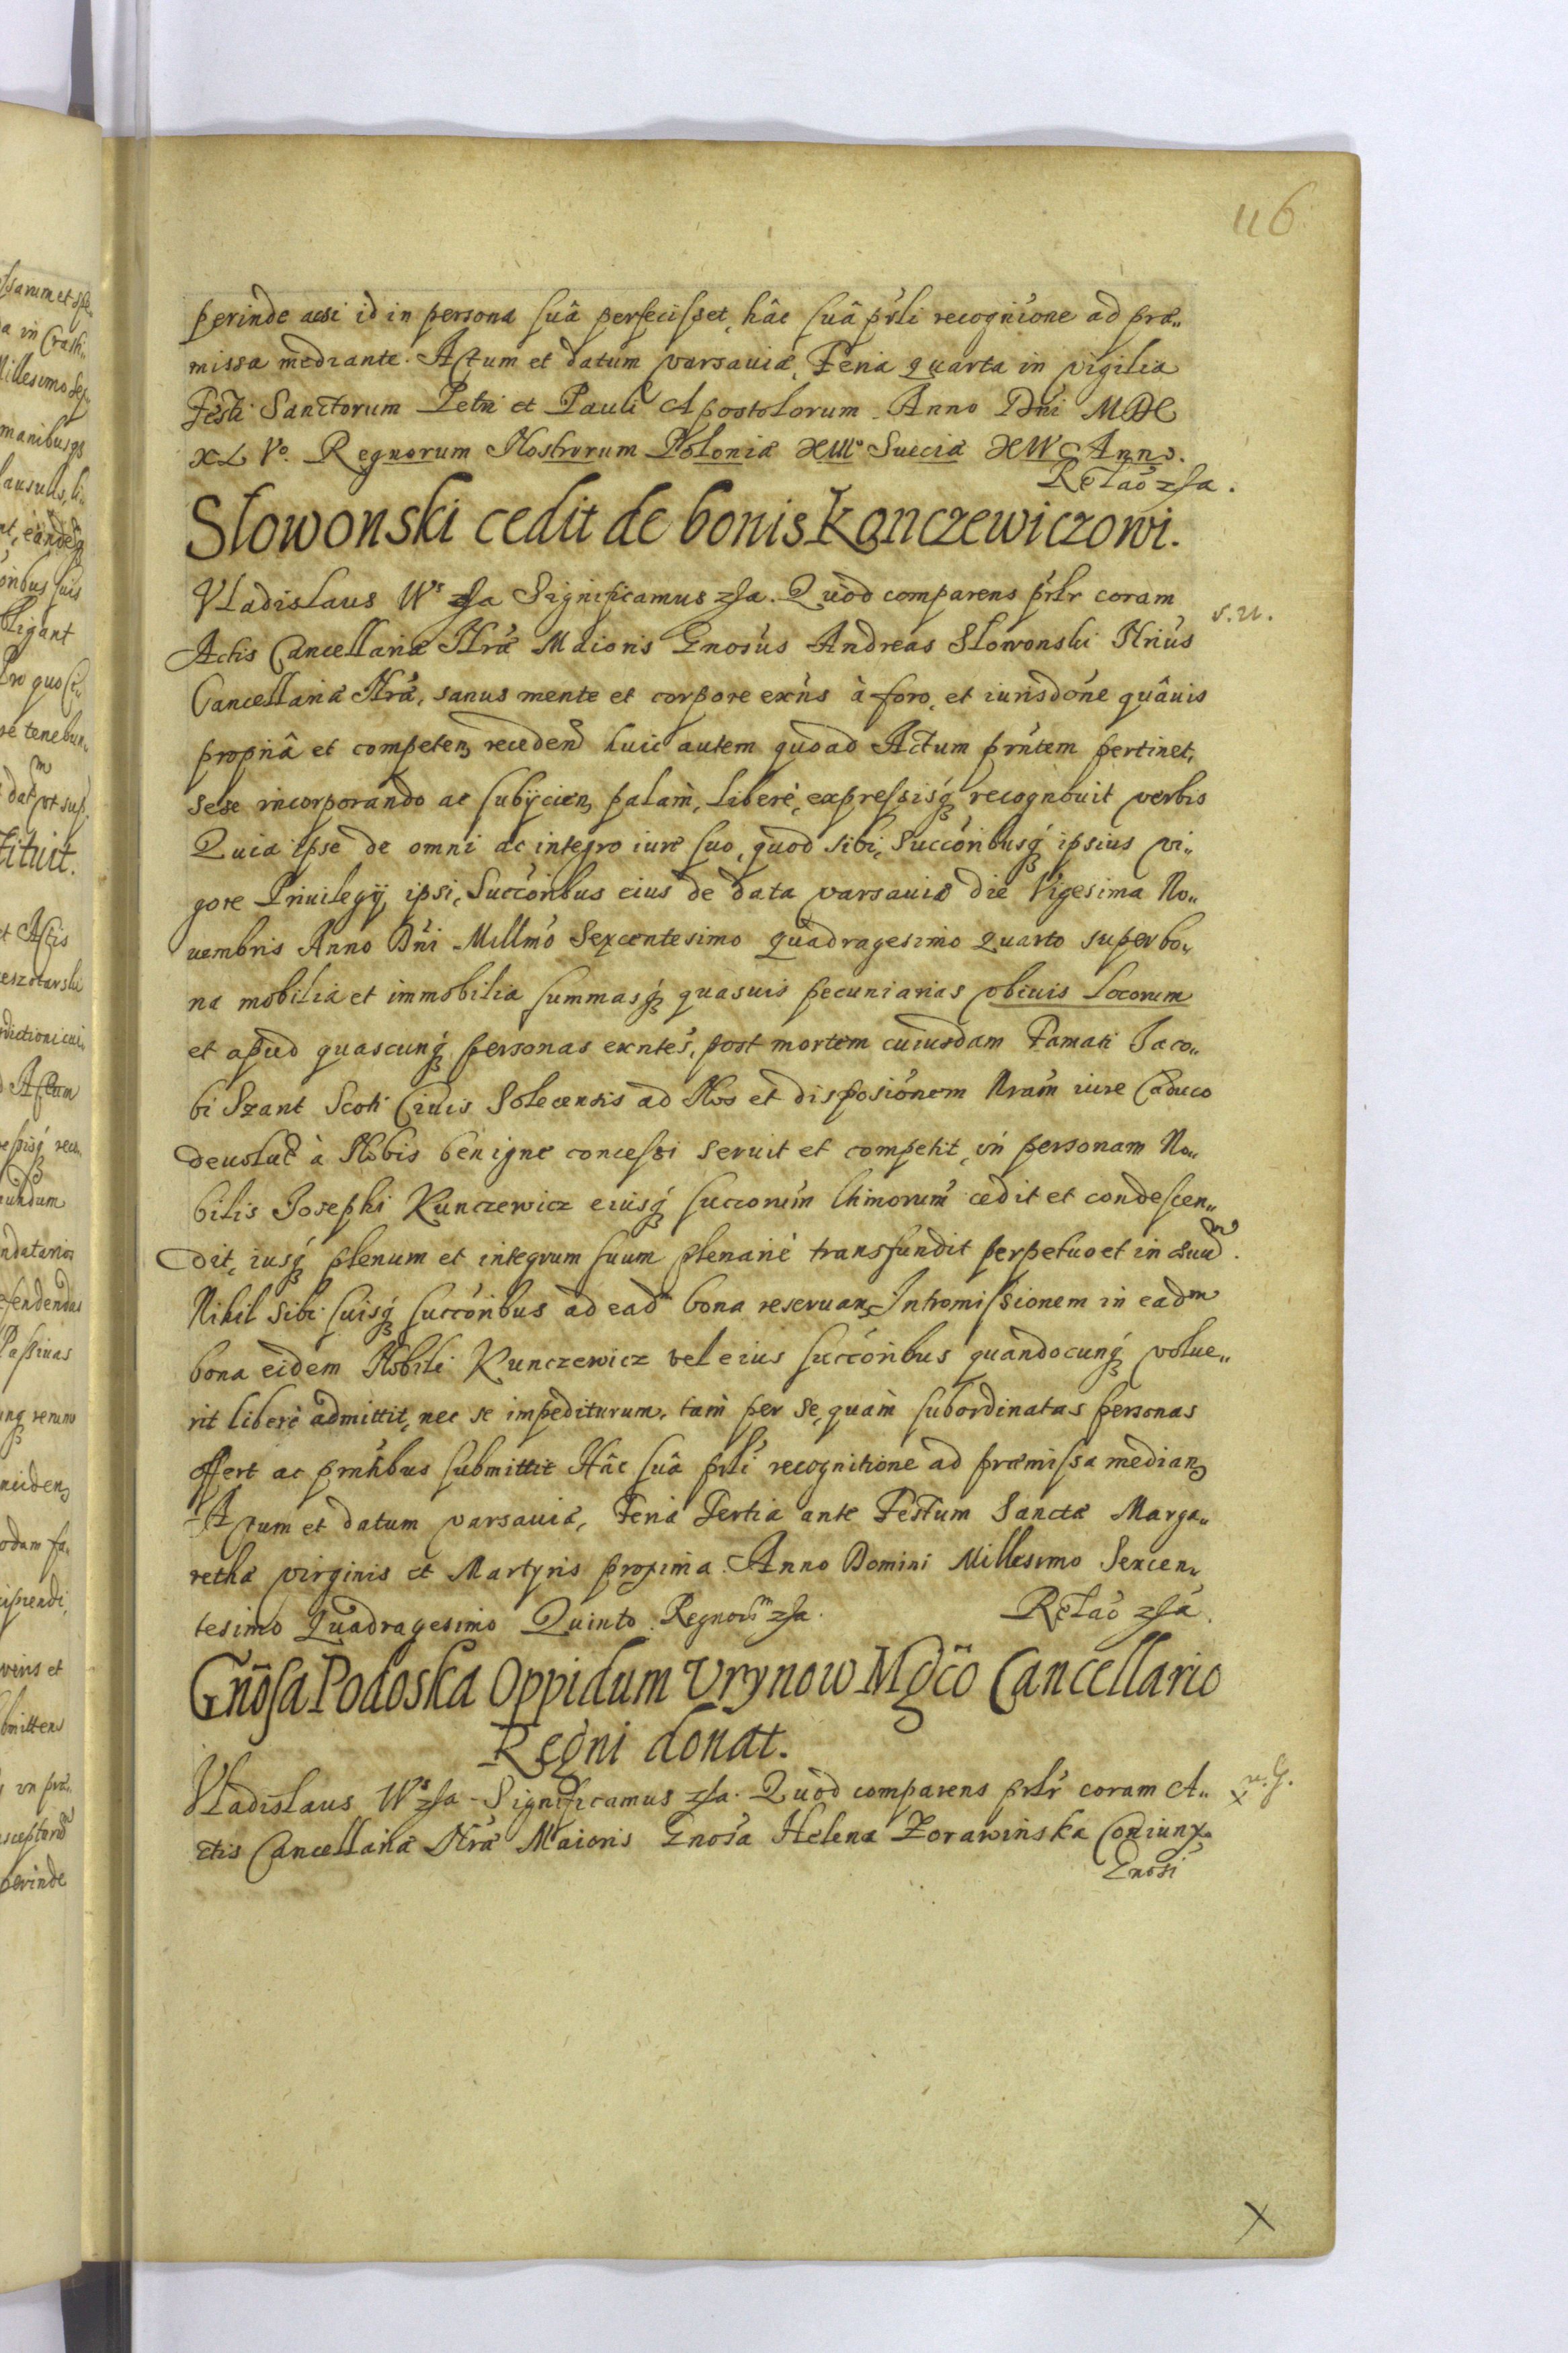 116
perinde acsi id in persona suâ perfecisset, hâc suâ prñli recogniōne ad præ„
missa mediante. Actum et datum varsauiæ, Feria quarta in vigilia
Festi Sanctorum Petri et Pauli Apostolorum. Anno Dni MDC
XLVo. Regnorum Nostrorum Poloniæ XIII° Sueciæ XIV Anno.
Relao zSa.
Słowonski cedit de bonis Konczewiczowi.
Vladislaus IVs zSa Significamus zSa. Quòd comparens prlr coram
s. u.
Actis Cancellariæ Nræ Maioris Gnosus Andreas Słowonski Nrius
Cancellariæ Nræ, sanus mente et corpore exns à foro, et iurisdone quâuis
propriâ et competen, recedend huic autem quoad Actum prntem pertinet,
sese incorporando ac subijcien, palàm, liberè, expressisq recognouit verbis
Quia ipse de omni ac integro iure suo, quod sibi, Succoribusq ipsius vi„
gore Priuilegij, ipsi, Succoribus eius de data varsauiæ die Vigesima No„
uembris Anno Dni Millmo Sexcentesimo quadragesimo quarto super bo„
na mobilia et immobilia summasq quasuis pecuniarias vbiuis locorum
et apud quascunq personas exntes, post mortem cuiusdam Famati Jaco„
bi Szant Scoti Ciuis Solecensis ad Nos et disposionem Nram iure Caduco
deuolut à Nobis benigne concessi seruit et competit, in personam No„
bilis Josephi Kunczewicz eiusq succorum lthimorum cedit et condescen„
dit, iusq plenum et integrum suum plenariè transfundit perpetuo et in æuum.
Nihil sibi suisq succoribus ad ead bona reseruan, Intromissionem in eadm
bona eidem Nobili Kunczewicz vel eius succoribus quandocunq volue„
rit liberè admittit, nec se impediturum, tàm per se, quàm subordinatas personas
offert ac prntibus submittit Hâc suâ prli recognitione ad præmissa median,
Actum et datum varsauiæ, Feria Tertia ante Festum Sanctæ Marga„
rethæ virginis et Martyris proxima. Anno Domini Millesimo Sexcen„
tesimo Quadragesimo Quinto. Regnorm zSa.
Relao zSa.
Gnosa Podoska Oppidum Vrynow Mgco Cancellario
Regni donat.
Vladislaus IVs zSa. Significamus zSa. Quòd comparens prlr coram A„
ctis Cancellariæ Nræ Maioris Gnosa Helena Zorawinska Coniunx
Gnosi
x